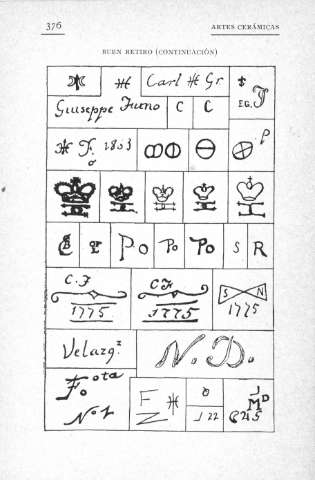 376
ARTES CERÁMICAS
BUEN RETIRO (CONTINUACIÓN)
Carl Gr
E.G. J
Giuseppe Fumo C C
F. 1803
P
Po Po Po S R
C. F
1775
C F
1775
S N
1775
Velazqz
N. D.
Fo ota
No 1
F
Z
122
J
MD